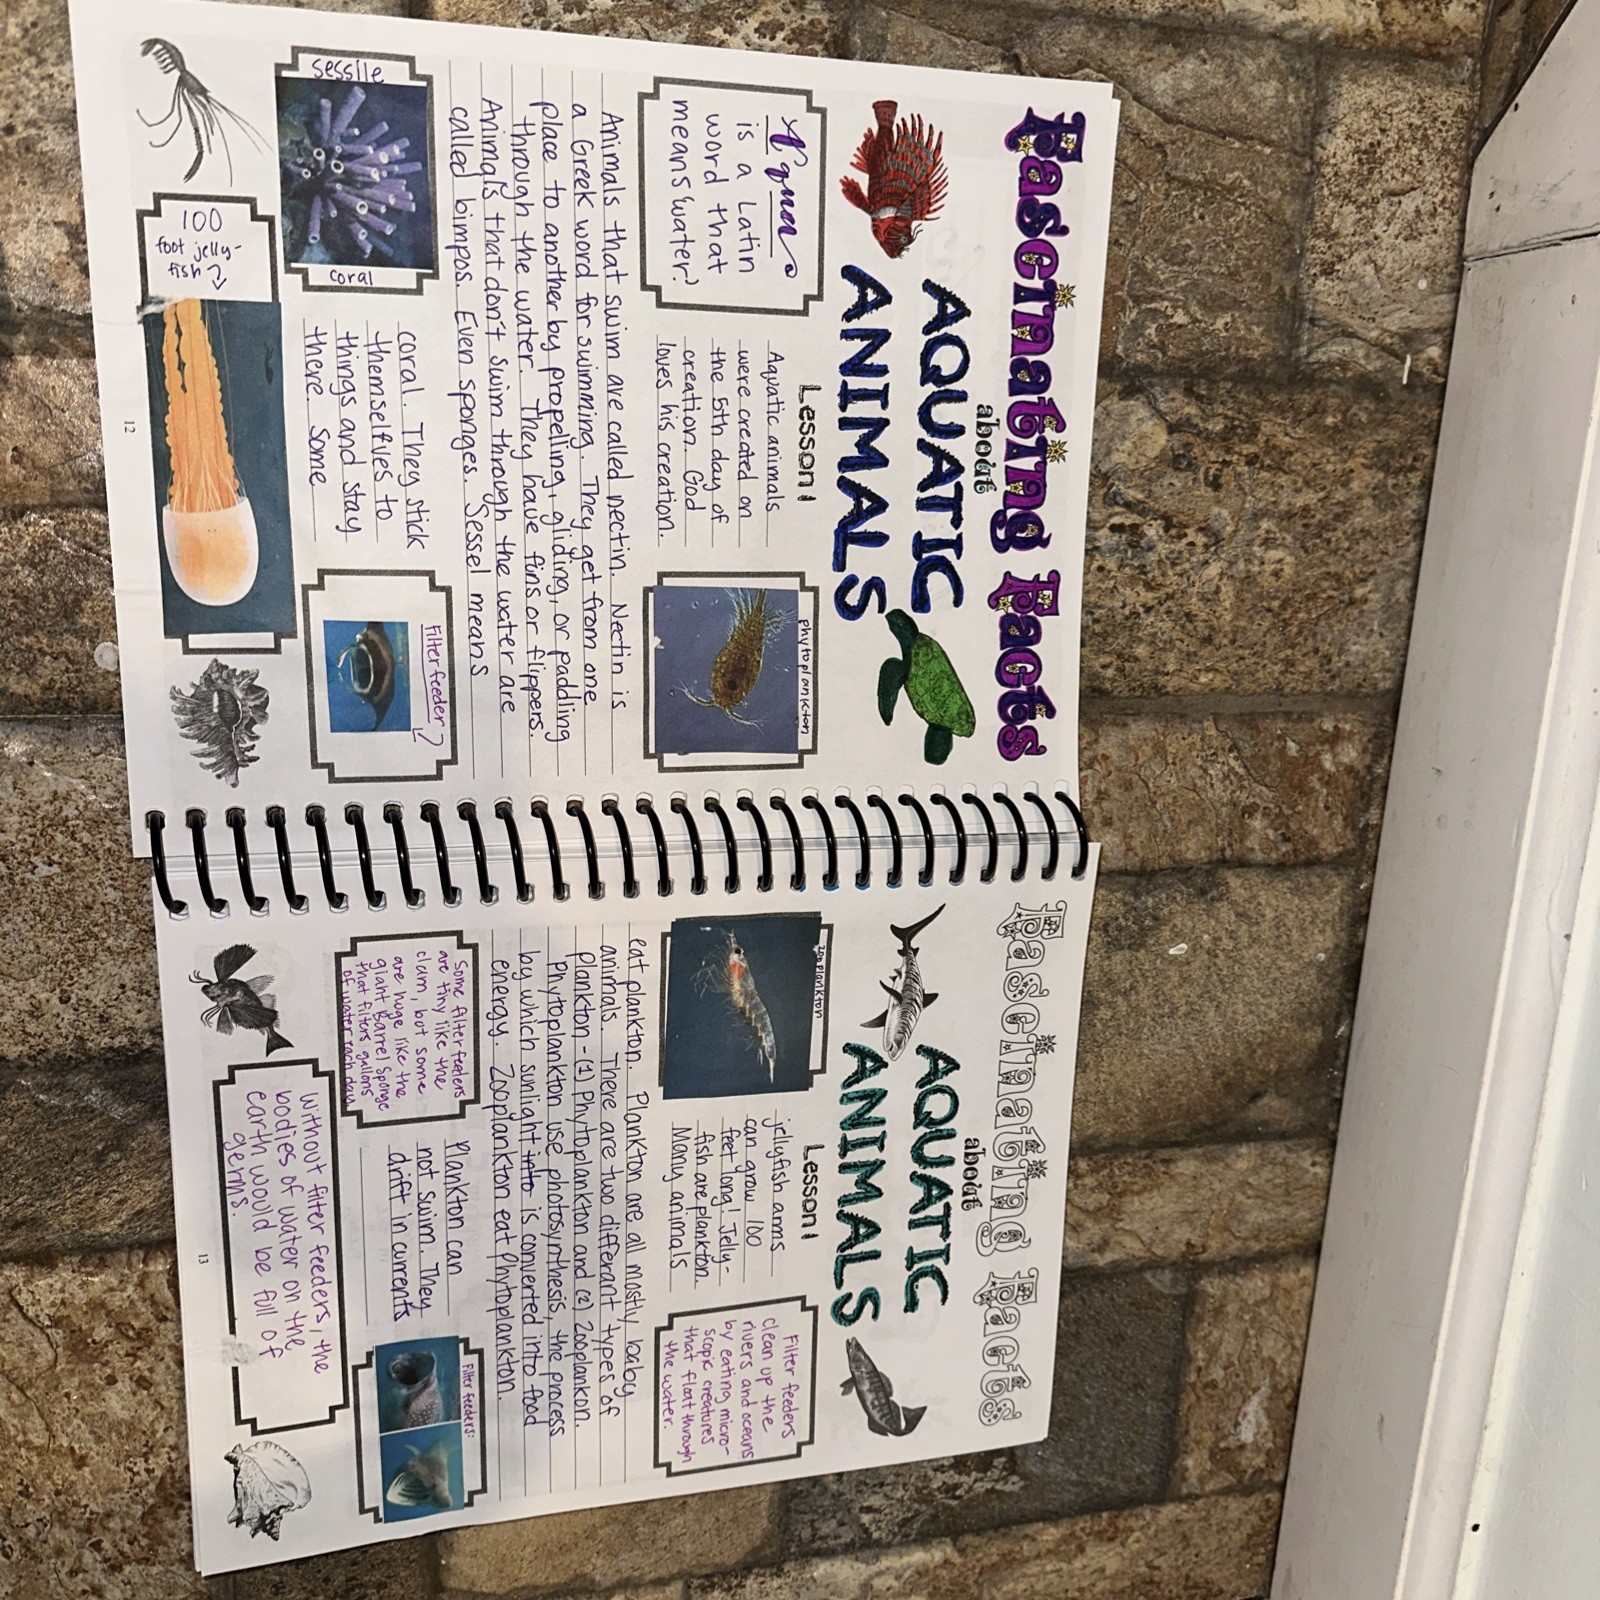 Fascinating Facts
about
AQUATIC
ANIMALS
Lesson 1
Aqua
is a Latin
word that
means "water".
Aquatic animals
were created on
the 5th day of
creation. God
loves his creation.
phytoplankton
Animals that swim are called nectin. Nectin is
a Greek word for swimming. They get from one
place to another by propelling, gliding, or paddling
through the water. They have fins or flippers.
Animals that don't swim through the water are
called bimpos. Even sponges. Sessel means
sessile
coral
coral. They stick
themselfves to
things and stay
there. Some
Filter feeder
100
foot jelly-
fish
12
Fascinating Facts
about
AQUATIC
ANIMALS
Lesson 1
zooplankton
jellyfish arms
can grow 100
feet long! Jelly-
fish are plankton.
Many animals
Filter feeders
clean up the
rivers and oceans
by eating micro-
scopic creatures
that float through
the water.
eat plankton. Plankton are all mostly baby
animals. There are two differant types of
plankton - (1) Phytoplankton and (2) Zooplankton.
Phytoplankton use photosynthesis, the process
by which sunlight into is converted into food
energy. Zooplankton eat Phytoplankton.
Some filter feeders
are tiny like the
clam, but some
are huge like the
giant Barrel Sponge
that filters gallons
of water each day.
Plankton can
not swim. They
drift in currents
Filter feeders:
Without filter feeders, the
bodies of water on the
earth would be full of
germs.
13